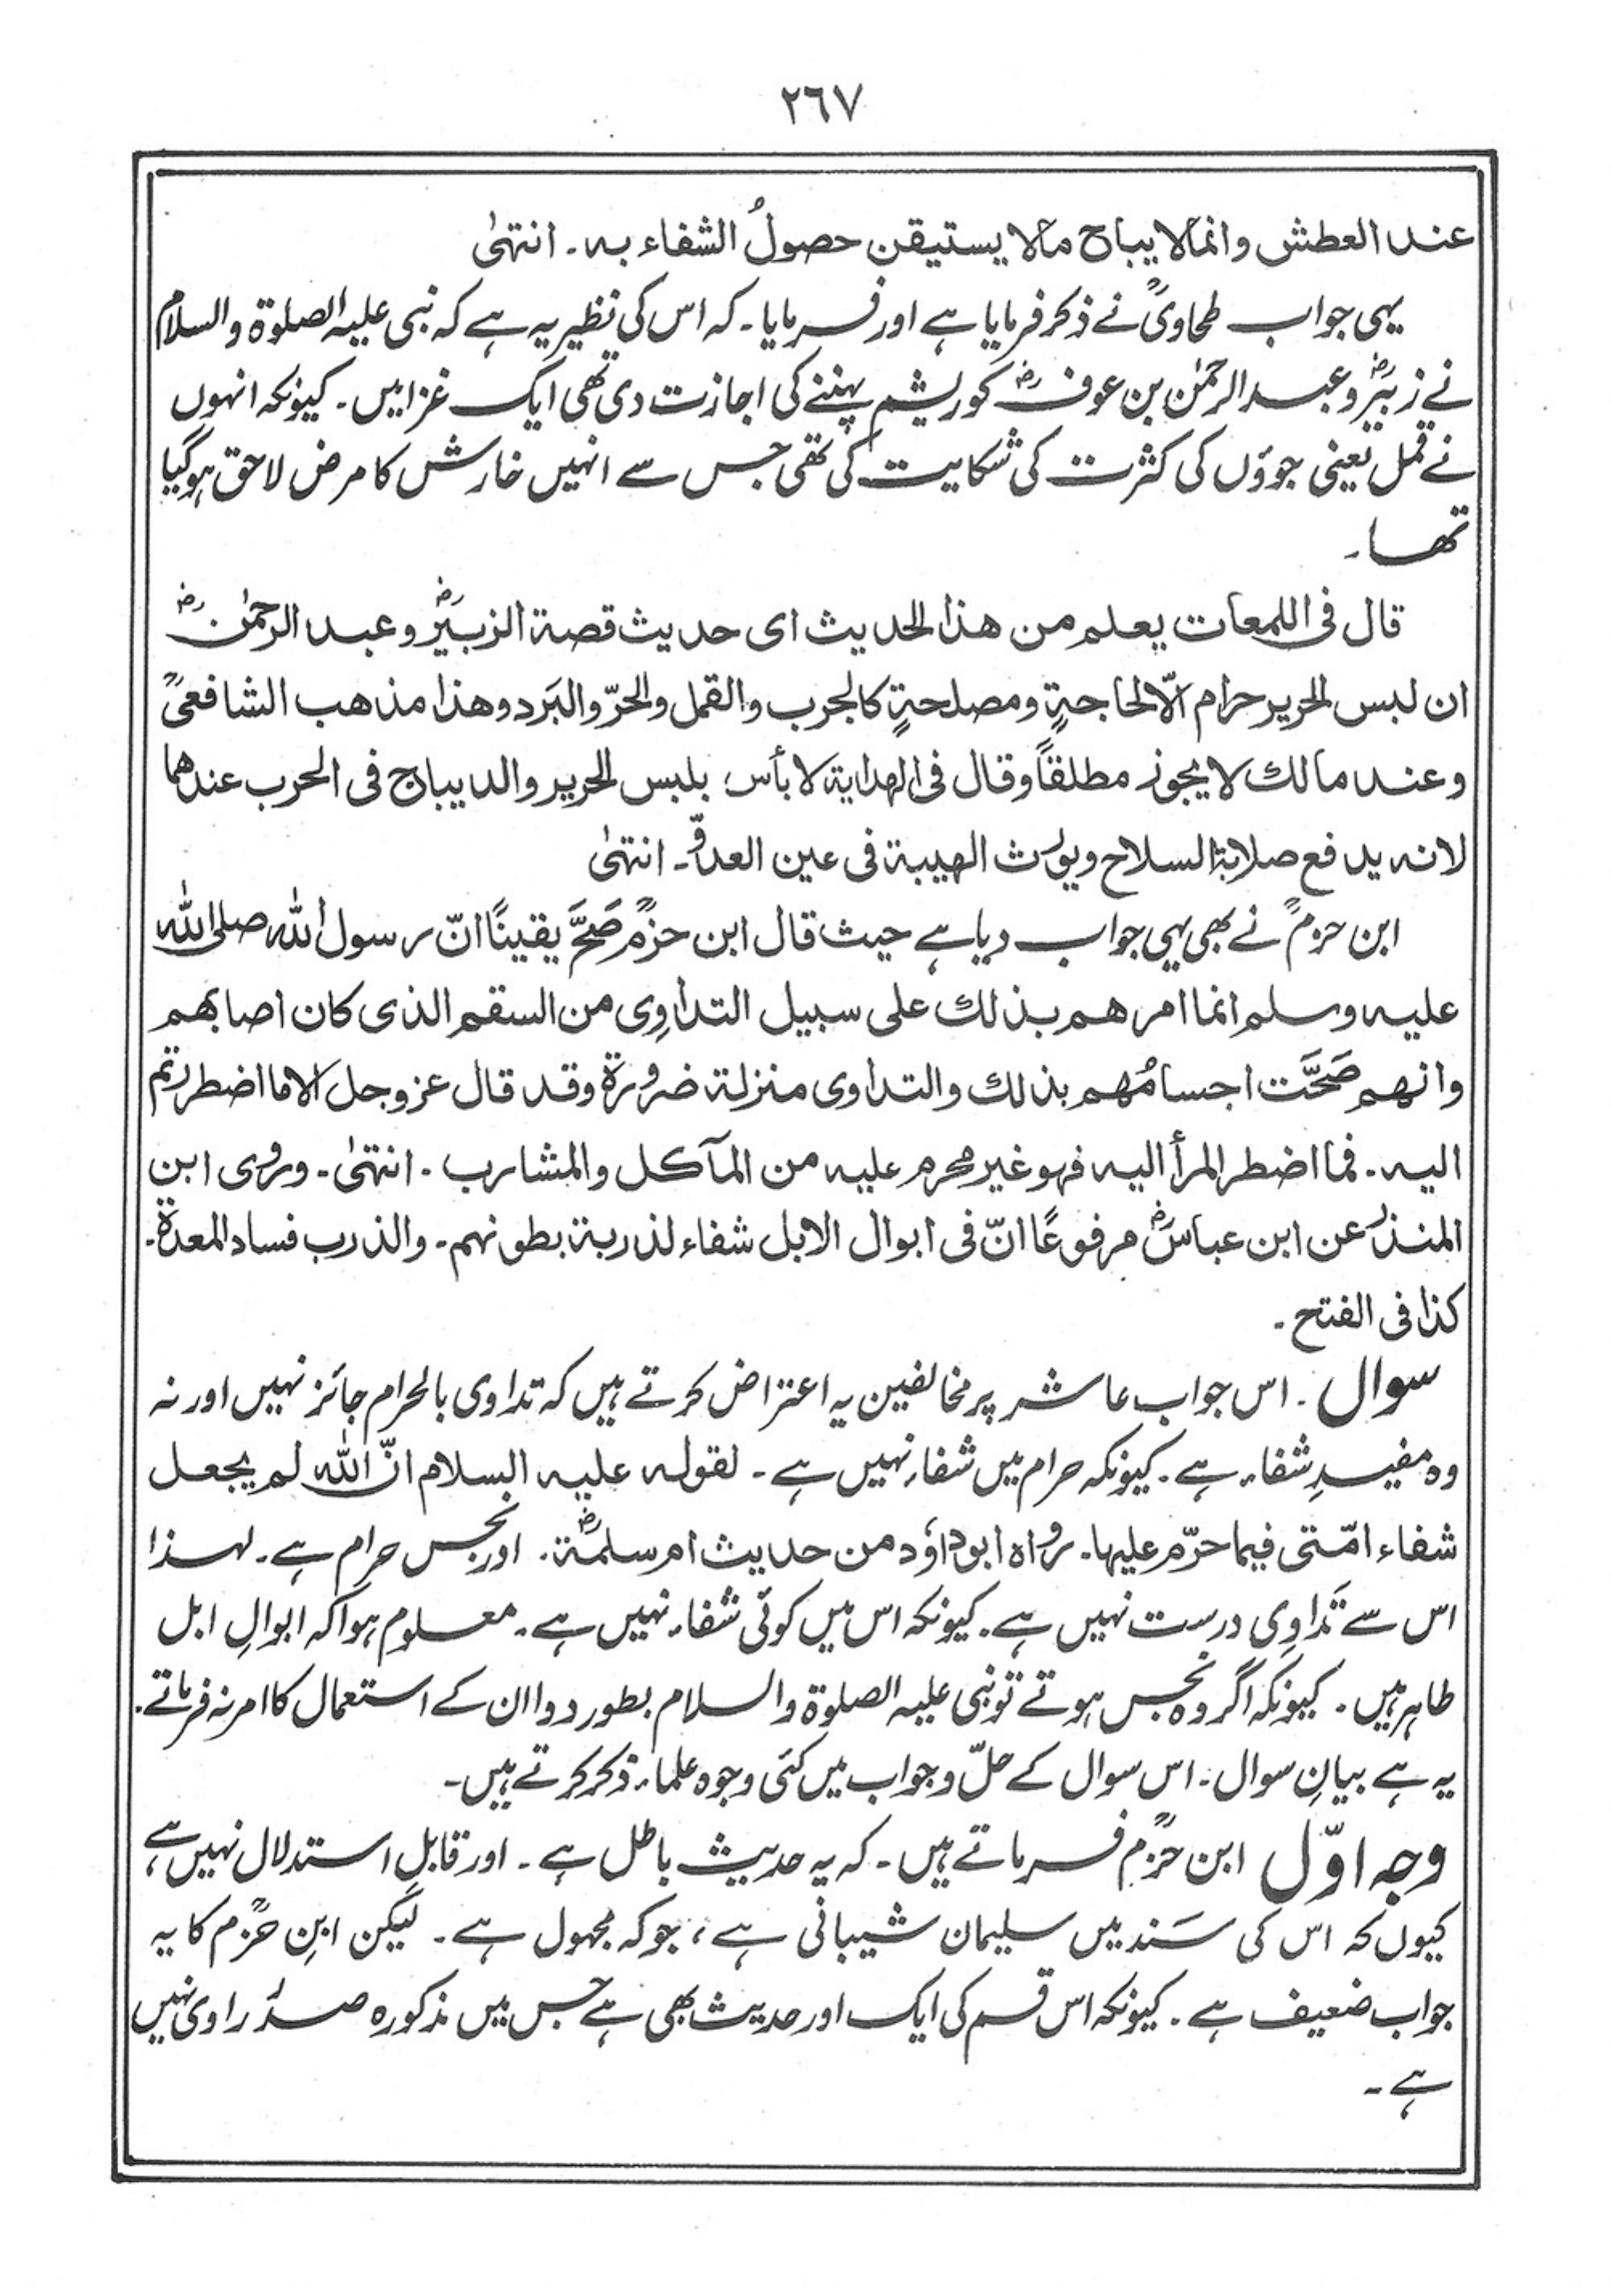 ٢٦٧
عند العطش وانمالا يباح مالا يستيقن حصولُ الشفاء به ۔ انتہیٰ
یہی جواب طحاویؒ نے ذکر فرمایا ہے اور فرمایا ۔ کہ اس کی نظیر یہ ہے کہ نبی علیہ الصلوۃ والسلام
نے زبیرؓ و عبد الرحمٰن بن عوفؓ کو ریشم پہننے کی اجازت دی تھی ایک غزا میں ۔ کیونکہ انہوں
نے قمل یعنی جوؤں کی کثرت کی شکایت کی تھی جس سے انہیں خارش کا مرض لاحق ہوگیا
تھا ۔
قال فی اللمعات یعلم من ھذا الحدیث ای حدیث قصة الزبیرؓ وعبد الرحمٰنؓ
ان لبس الحریر حرام الّا لحاجةٍ ومصلحةٍ کالجرب والقمل والحرّ والبَرد وھذا مذھب الشافعیؒ
وعند مالك لا یجوز مطلقاً وقال فی الھدایة لا بأس بلبس الحریر والدیباج فی الحرب عندھما
لانه یدفع صلابة السلاح ویورث الھیبة فی عین العدوّ ۔ انتہیٰ
ابن حزمؒ نے بھی یہی جواب دیا ہے حیث قال ابن حزمؒ صَحَّ یقینًا انّ رسول اللہ صلی اللہ
علیه وسلم انما امرھم بذلك علی سبیل التداوِی من السقم الذی کان اصابھم
وانھم صَحَّت اجسامُھم بذلك والتداوی منزلة ضرورة وقد قال عزوجل الا ما اضطررتم
الیه ۔ فما اضطر المرأ الیه فھو غیر محرم علیه من المآکل والمشارب ۔ انتہیٰ ۔ وروی ابن
المنذر عن ابن عباسؓ مرفوعًا انّ فی ابوال الابل شفاء لذربة بطونھم ۔ والذرب فساد المعدة ۔
کذا فی الفتح ۔
سوال ۔ اس جواب عاشر پر مخالفین یہ اعتراض کرتے ہیں کہ تداوی بالحرام جائز نہیں اور نہ
وہ مفیدِ شفاء ہے ۔ کیونکہ حرام میں شفاء نہیں ہے ۔ لقوله علیه السلام انّ اللہ لم یجعل
شفاء امّتی فیما حرّم علیھا ۔ رواہ ابو داؤد من حدیث ام سلمةؓ ۔ اور نجس حرام ہے ۔ لہذا
اس سے تَداوِی درست نہیں ہے ۔ کیونکہ اس میں کوئی شفاء نہیں ہے ۔ معلوم ہوا کہ ابوالِ ابل
طاہر ہیں ۔ کیونکہ اگر وہ نجس ہوتے تو نبی علیہ الصلوۃ والسلام بطور دوا ان کے استعمال کا امر نہ فرماتے ۔
یہ ہے بیانِ سوال ۔ اس سوال کے حلّ و جواب میں کئی وجوہ علماء ذکر کرتے ہیں ۔
وجہ اوّل ابن حزمؒ فرماتے ہیں ۔ کہ یہ حدیث باطل ہے ۔ اور قابلِ استدلال نہیں ہے ،
کیوں کہ اس کی سَند میں سلیمان شیبانی ہے ، جو کہ مجہول ہے ۔ لیکن ابنِ حزمؒ کا یہ
جواب ضعیف ہے ۔ کیونکہ اس قسم کی ایک اور حدیث بھی ہے جس میں مذکورہ صدر راوی نہیں
ہے ۔